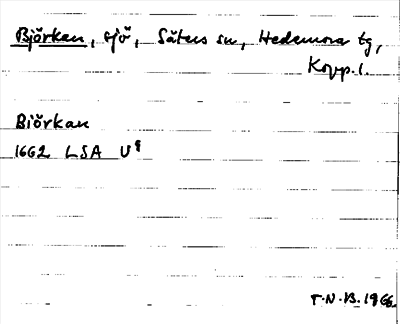 Björkan, sjö, Säters sn, Hedemora tg,
Kopp. l.
Biörkan
1662 LSA U⁹
T.N.B. 1966.